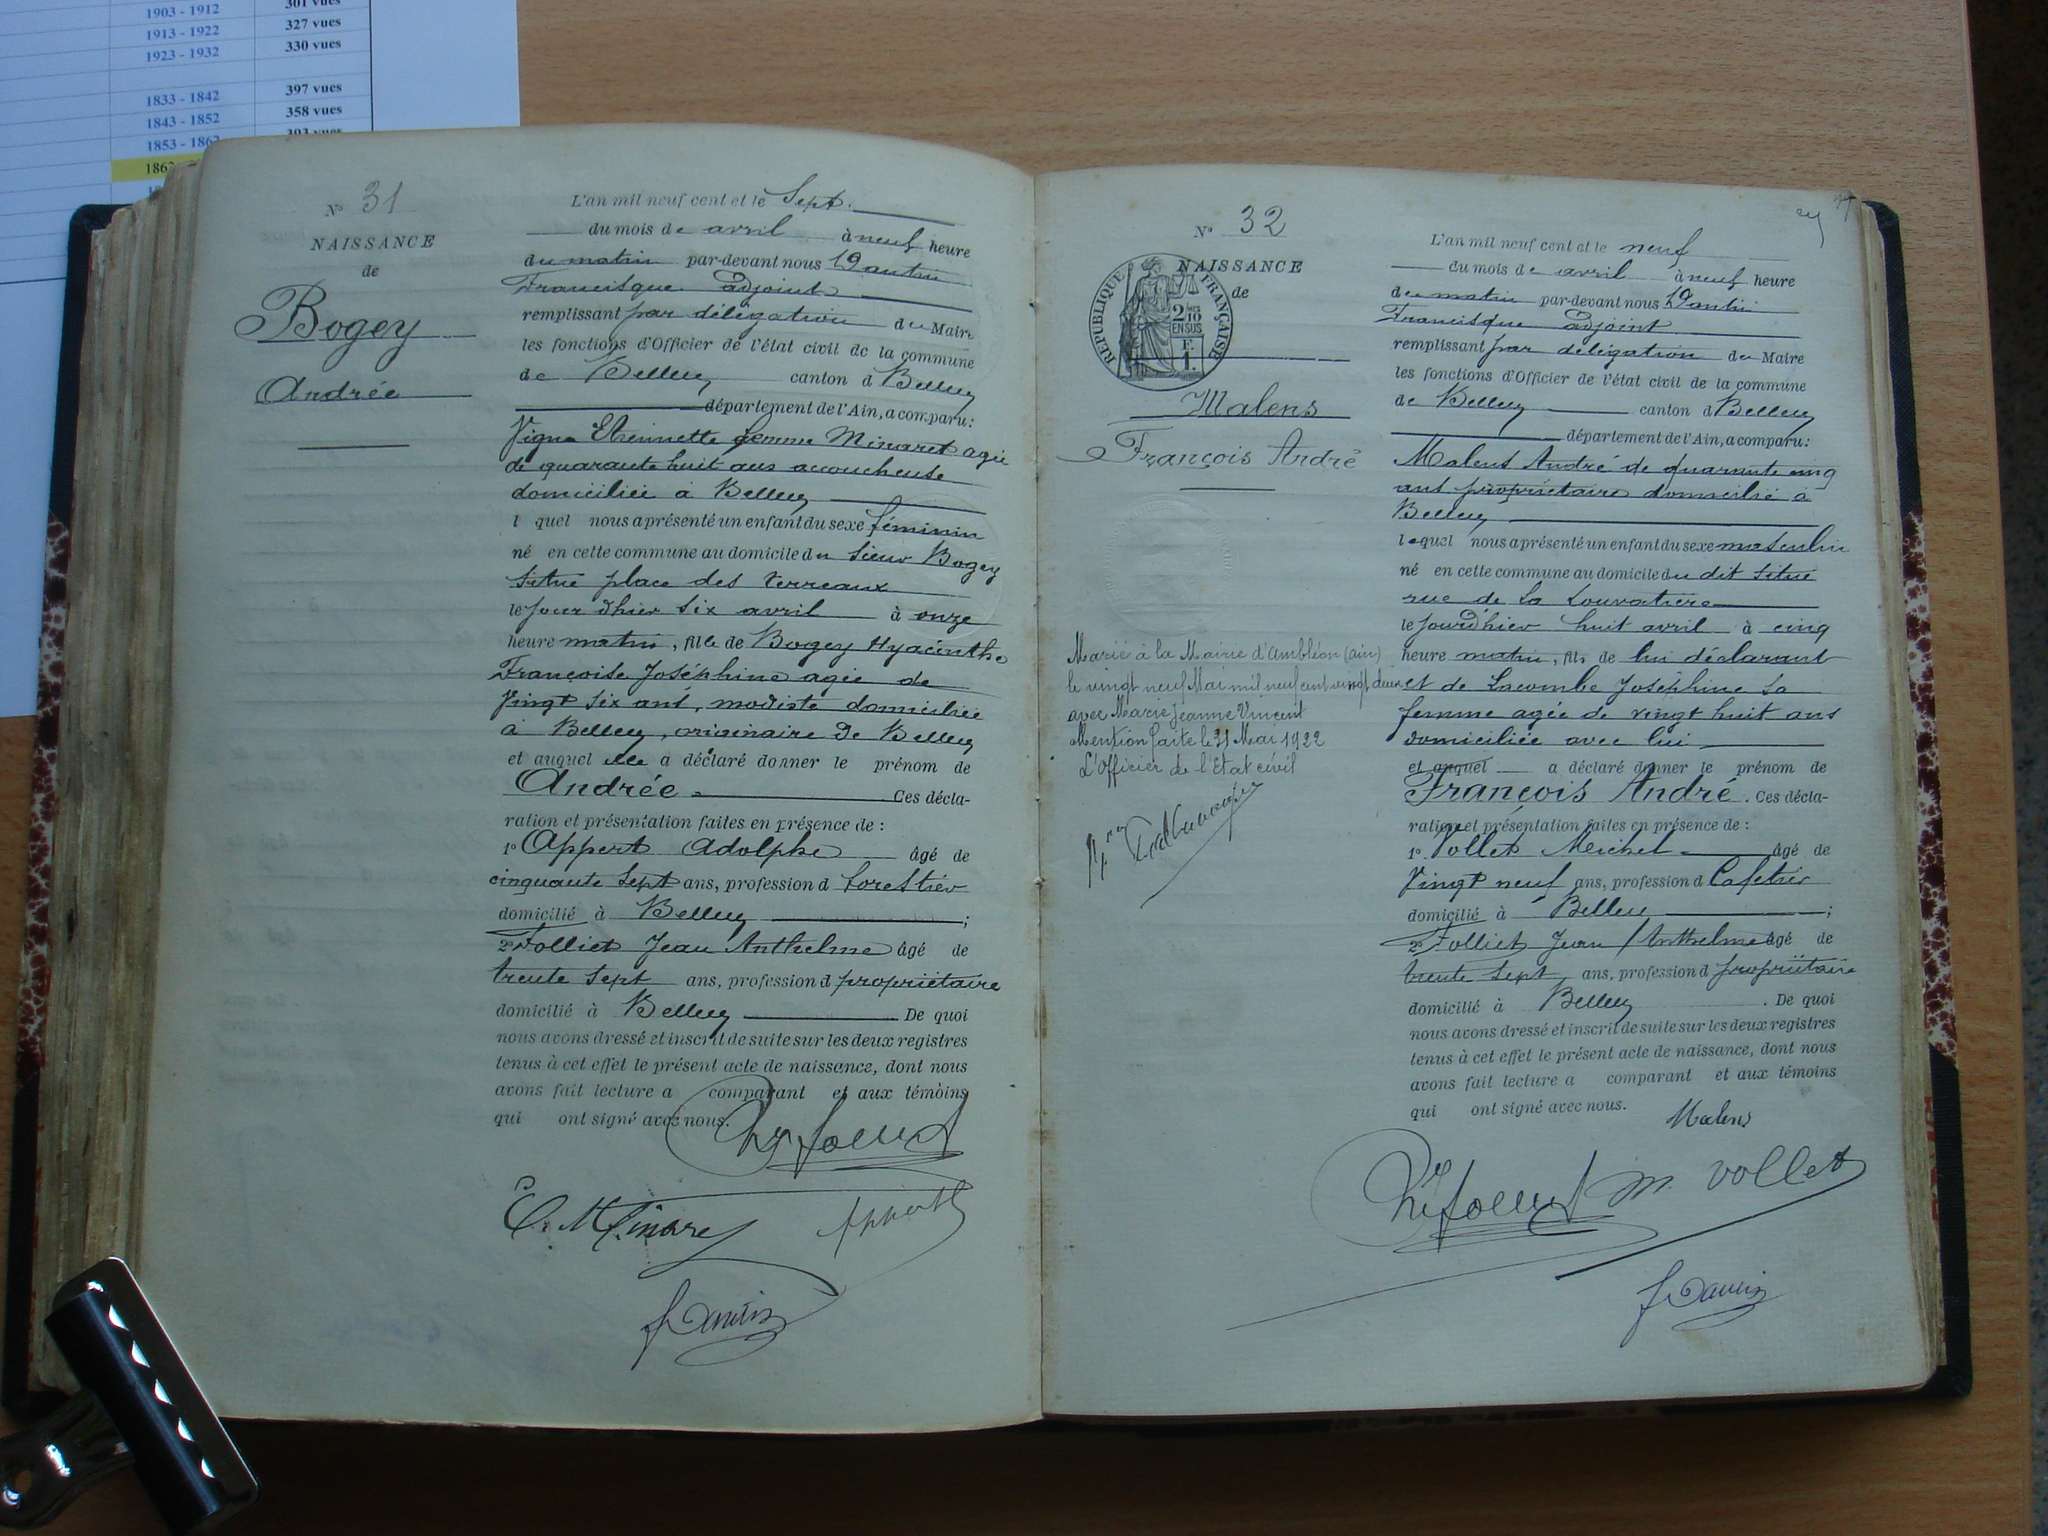 1903 - 1912 301 vues
1913 - 1922 327 vues
1923 - 1932 330 vues
1833 - 1842 397 vues
1843 - 1852 358 vues
1853 - 1862 393 vues
N° 31
NAISSANCE
de
Bogey
Andrée
L'an mil neuf cent et le Sept.
du mois de avril à neuf heure
du matin par-devant nous Dantin
Francisque adjoint
remplissant par délégation du Maire
les fonctions d'Officier de l'état civil de la commune
de Belley canton d Belley
département de l'Ain, a comparu:
Vigne Etiennette femme Minaret agée
de quarante huit ans accoucheuse
domiciliée à Belley
l quel nous a présenté un enfant du sexe féminin
né en cette commune au domicile du sieur Bogey
situé place des terreaux
le jour d'hier six avril à onze
heure matin, fille de Bogey Hyacinthe
Françoise Joséphine agée de
vingt six ans, modiste domiciliée
à Belley, originaire de Belley
et auquel elle a déclaré donner le prénom de
Andrée Ces décla-
ration et présentation faites en présence de :
1° Appert Adolphe âgé de
cinquante sept ans, profession d forestier
domicilié à Belley ;
2° Folliet Jean Anthelme âgé de
trente sept ans, profession d propriétaire
domicilié à Belley De quoi
nous avons dressé et inscrit de suite sur les deux registres
tenus à cet effet le présent acte de naissance, dont nous
avons fait lecture a comparant et aux témoins
qui ont signé avec nous.
E. Minaret Appert
F Dantin
N° 32
NAISSANCE
de
REPUBLIQUE FRANÇAISE
2 10
EN SUS
F.
1.
Malens
François André
Marié à la Mairie d'Ambléon (ain)
le vingt neuf Mai mil neuf cent vingt deux
avec Marie Jeanne Vincent
Mention faite le 31 Mai 1922
L'Officier de l'Etat civil
L'an mil neuf cent et le neuf
du mois de avril à neuf heure
du matin par-devant nous Dantin
Francisque adjoint
remplissant par délégation du Maire
les fonctions d'Officier de l'état civil de la commune
de Belley canton d Belley
département de l'Ain, a comparu:
Malens André de quarante cinq
ans propriétaire domicilié à
Belley
lequel nous a présenté un enfant du sexe masculin
né en cette commune au domicile du dit situé
rue de la Louvatière
le jour d'hier huit avril à cinq
heure matin, fils de lui déclarant
et de Lacombe Joséphine sa
femme agée de vingt huit ans
domiciliée avec lui
et auquel a déclaré donner le prénom de
François André. Ces décla-
ration et présentation faites en présence de :
1° Vollet Michel âgé de
Vingt neuf ans, profession d Cafetier
domicilié à Belley ;
2° Folliet Jean Anthelme âgé de
trente sept ans, profession d propriétaire
domicilié à Belley . De quoi
nous avons dressé et inscrit de suite sur les deux registres
tenus à cet effet le présent acte de naissance, dont nous
avons fait lecture a comparant et aux témoins
qui ont signé avec nous. Malens
M. Vollet
F Dantin